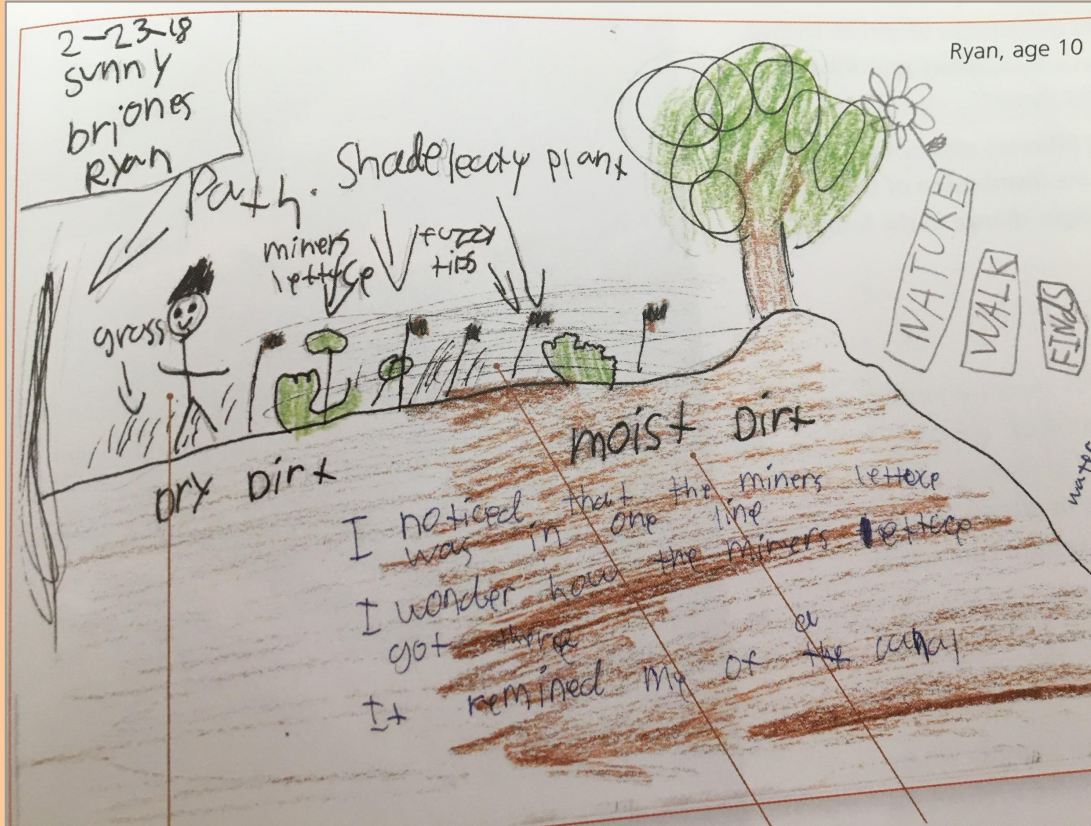 2-23-18
sunny
briones
Ryan
Ryan, age 10
Path.
Shade
leafy plant
miners
lettuce
fuzzy
tips
grass
NATURE
WALK
FINDS
Dry Dirt
moist Dirt
water
I noticed that the miners lettuce
was in one line
I wonder how the miners lettuce
got there
It remined my of a the canal